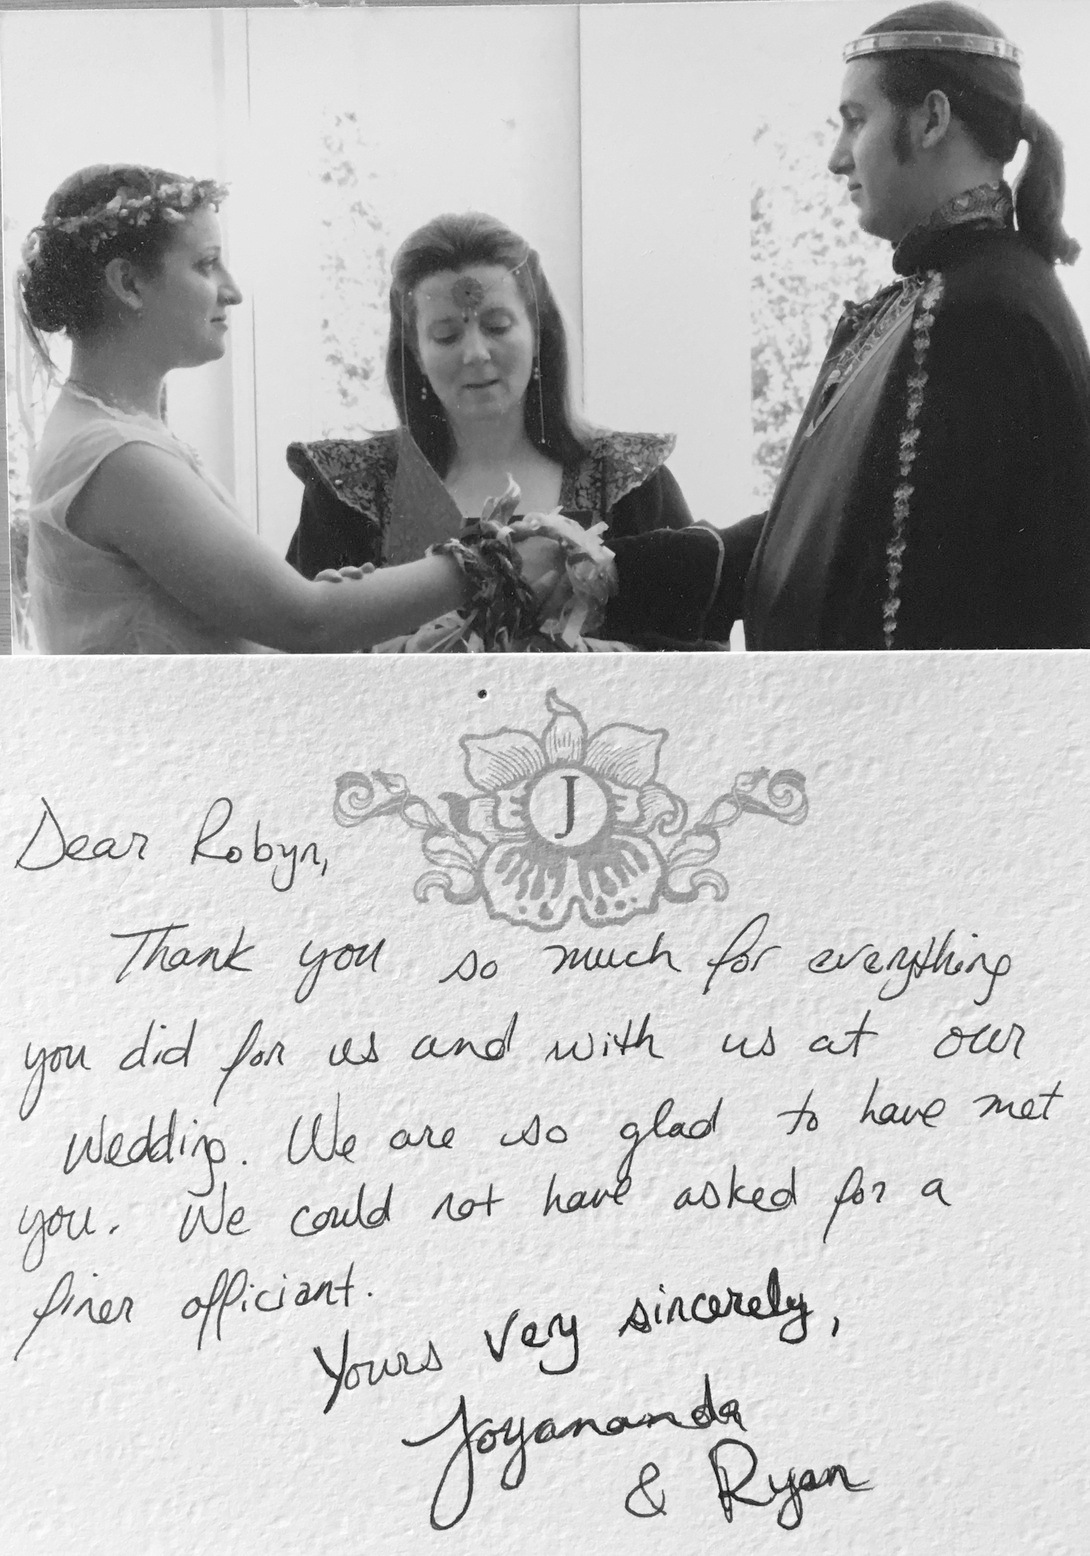 J
Dear Robyn,
Thank you so much for everything
you did for us and with us at our
wedding. We are so glad to have met
you. We could not have asked for a
finer officiant.
Yours very sincerely,
Joyananda
& Ryan